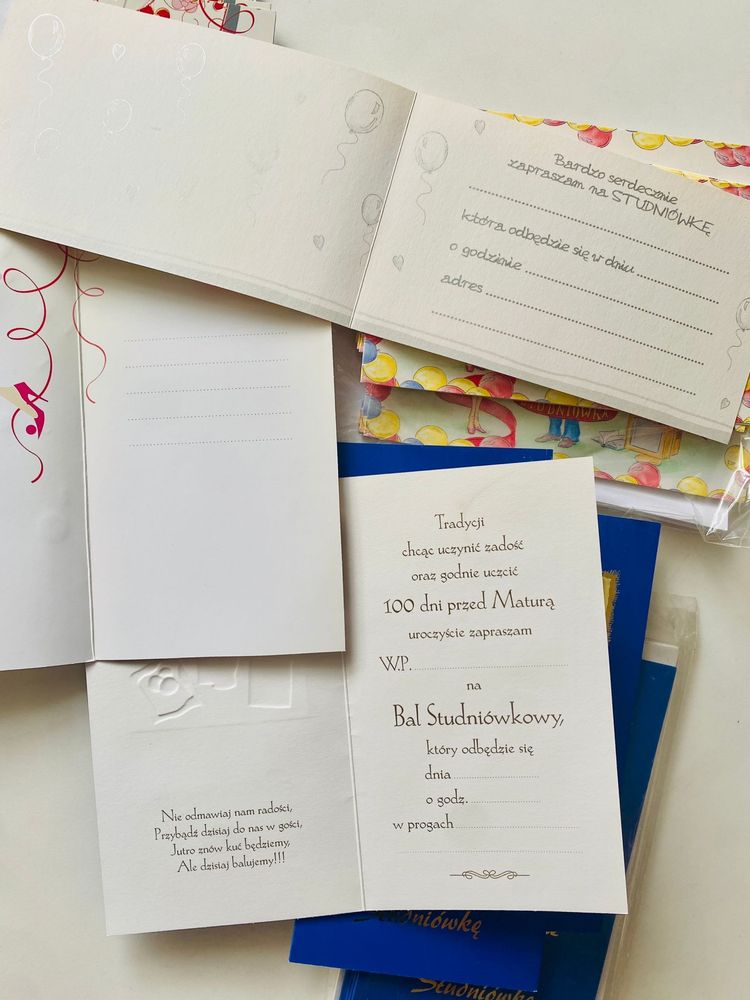 Bardzo serdecznie
zapraszam na STUDNIÓWKĘ
która odbędzie się w dniu
o godzinie
adres
STUDNIÓWKA
Tradycji
chcąc uczynić zadość
oraz godnie uczcić
100 dni przed Maturą
uroczyście zapraszam
W.P.
na
Bal Studniówkowy,
który odbędzie się
dnia
o godz.
w progach
Nie odmawiaj nam radości,
Przybądź dzisiaj do nas w gości,
Jutro znów kuć będziemy,
Ale dzisiaj balujemy!!!
Studniówkę
Studniówkę